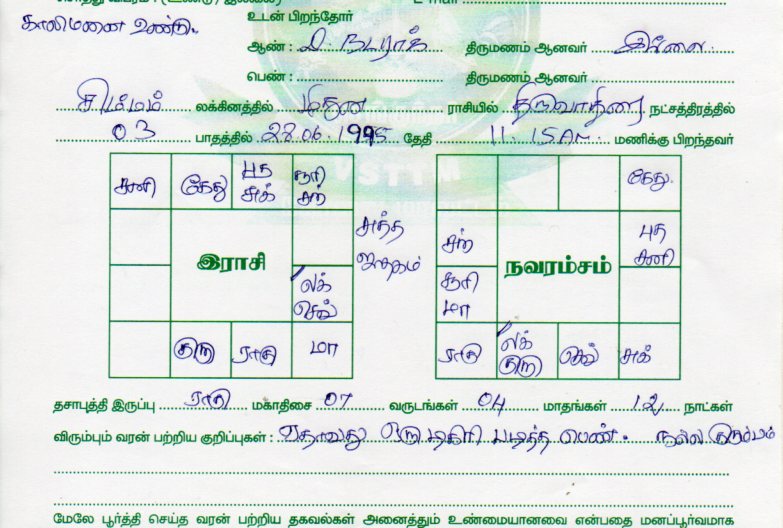 காலிமனை உண்டு.
உடன் பிறந்தோர்
ஆண் : D. நடராஜ் திருமணம் ஆனவர் இல்லை.
பெண் : திருமணம் ஆனவர்
சிம்மம் லக்கினத்தில் மிதுன ராசியில் திருவாதிரை நட்சத்திரத்தில்
03 பாதத்தில் 28.06.1995 தேதி 11.15AM. மணிக்கு பிறந்தவர்
சனி கேது புத சுக் சூரி சந்
சுத்த ஜாதகம்
இராசி
லக் செவ்
குரு ராகு மா
கேது.
சந் புத சனி
நவரம்சம்
சூரி மா
ராகு லக் குரு செவ் சுக்
தசாபுத்தி இருப்பு ராகு மகாதிசை 07 வருடங்கள் 04 மாதங்கள் 12 நாட்கள்
விரும்பும் வரன் பற்றிய குறிப்புகள் : ஏதாவது ஒரு டிகிரி படித்த பெண். நல்ல குடும்பம்
மேலே பூர்த்தி செய்த வரன் பற்றிய தகவல்கள் அனைத்தும் உண்மையானவை என்பதை மனப்பூர்வமாக